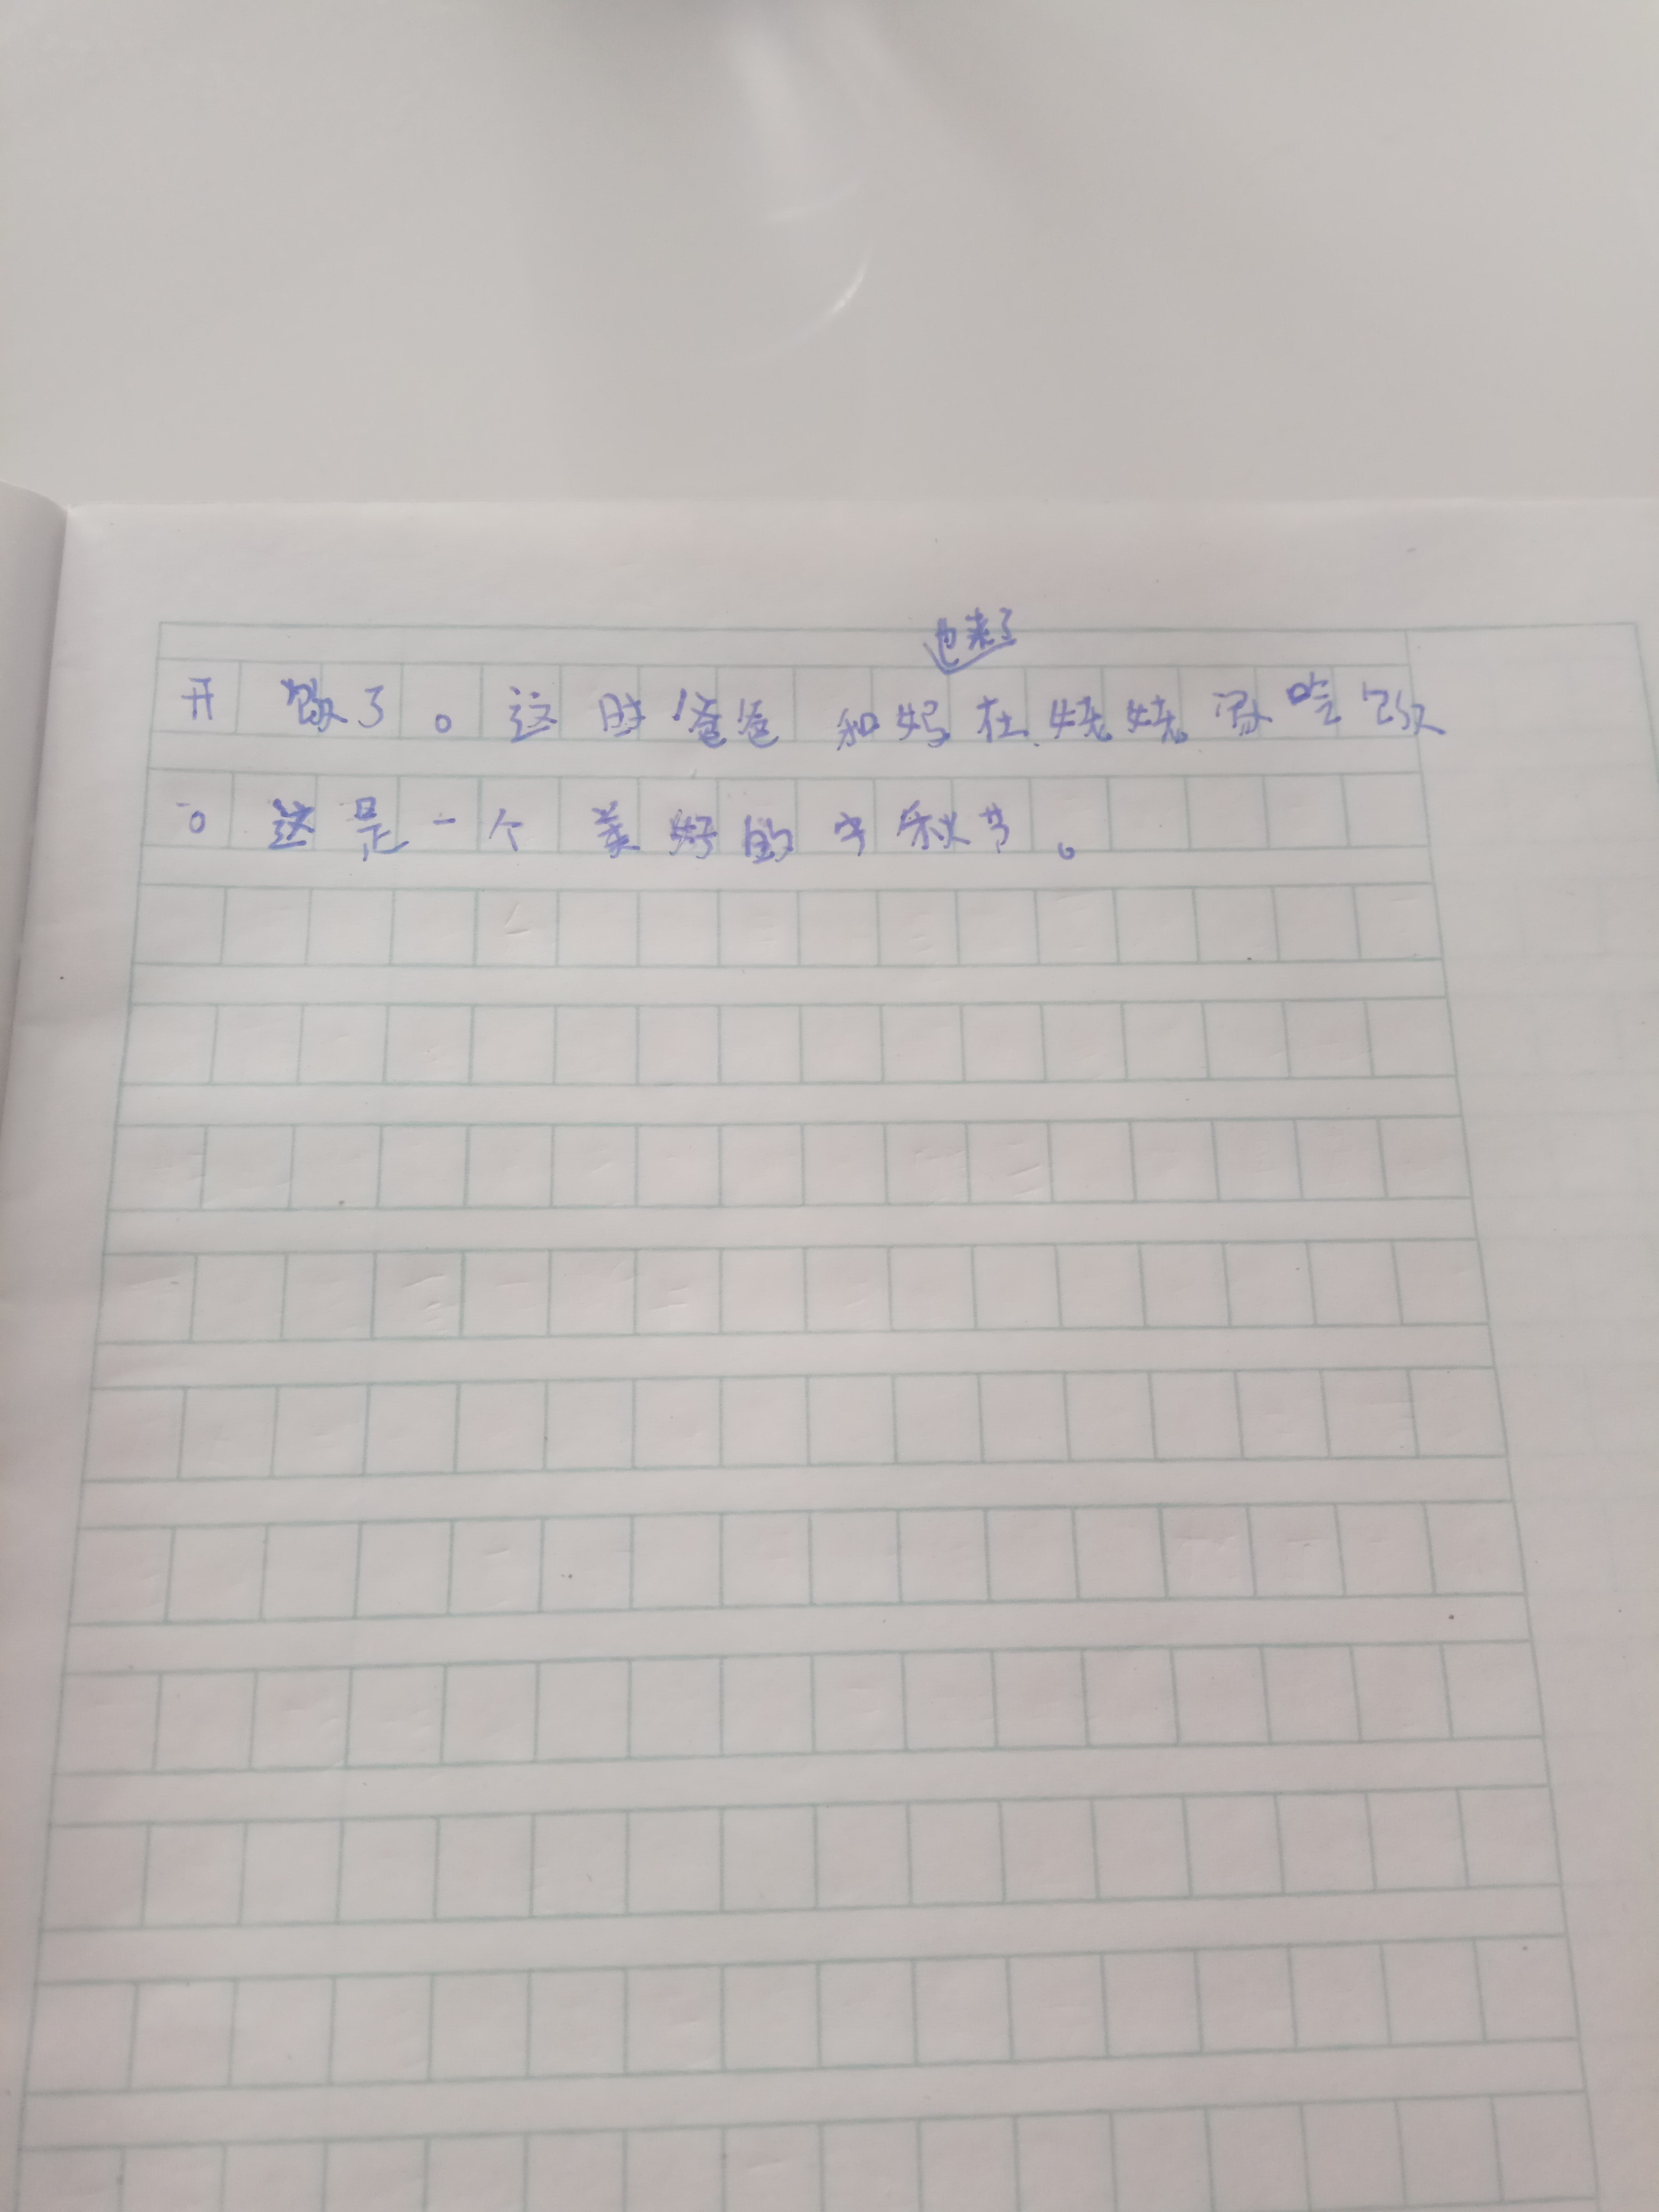 也来了
开饭了。这时爸爸和妈在姥姥家吃饭
。这是一个美好的中秋节。